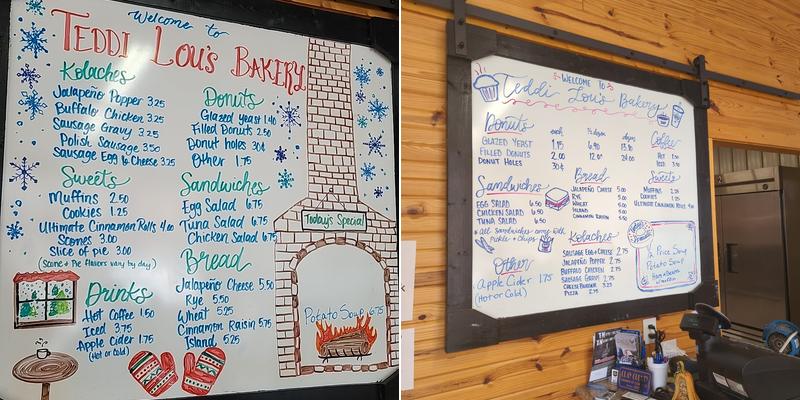 Welcome to
TEDDI LOU'S BAKERY
Kolaches
Jalapeño Popper 3.25
Buffalo Chicken 3.25
Sausage Gravy 3.25
Polish Sausage 3.50
Sausage Egg & Cheese 3.25
Sweets
Muffins 2.50
Cookies 1.25
Ultimate Cinnamon Rolls 4.00
Scones 3.00
Slice of pie 3.00
(Scone & Pie flavors vary by day)
Drinks
Hot Coffee 1.50
Iced 3.75
Apple Cider 1.75
(Hot or Cold)
Donuts
Glazed yeast 1.40
Filled Donuts 2.50
Donut holes 30¢
Other 1.75
Sandwiches
Egg Salad 6.75
Tuna Salad 6.75
Chicken Salad 6.75
Bread
Jalapeño Cheese 5.50
Rye 5.50
Wheat 5.25
Cinnamon Raisin 5.75
Island 5.25
Today's Special
Potato Soup 6.75
WELCOME TO
Teddi Lou's Bakery
Donuts
each ½ dozen dozen
GLAZED YEAST 1.15 6.90
FILLED DONUTS 2.00 12.00 24.00
DONUT HOLES 30¢
Coffee
HOT
ICED
Sandwiches
EGG SALAD 6.50
CHICKEN SALAD 6.50
TUNA SALAD
*All Sandwiches come with
Pickle + Chips
Other
Apple Cider 1.75
(Hot or Cold)
Bread
JALAPEÑO CHEESE 5.00
RYE 5.00
WHEAT 5.00
ISLAND 5.00
CINNAMON RAISIN
Kolaches
SAUSAGE EGG & CHEESE 2.75
JALAPEÑO POPPER 2.75
BUFFALO CHICKEN 2.75
SAUSAGE GRAVY 2.75
CHEESEBURGER
PIZZA
Sweets
MUFFINS
COOKIES
ULTIMATE CINNAMON ROLLS
½ Price Soup
Potato Soup